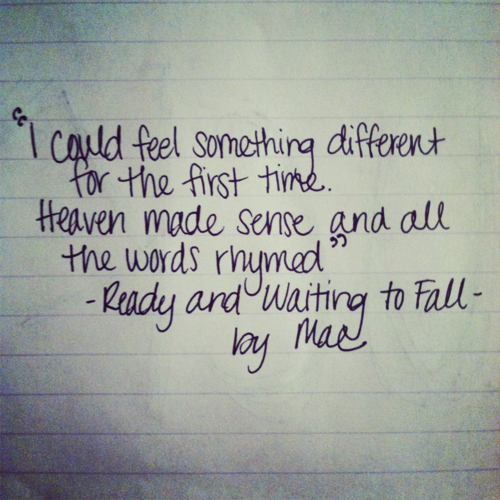 "I could feel something different
for the first time.
Heaven made sense and all
the words rhymed"
-Ready and Waiting to Fall-
by Mae